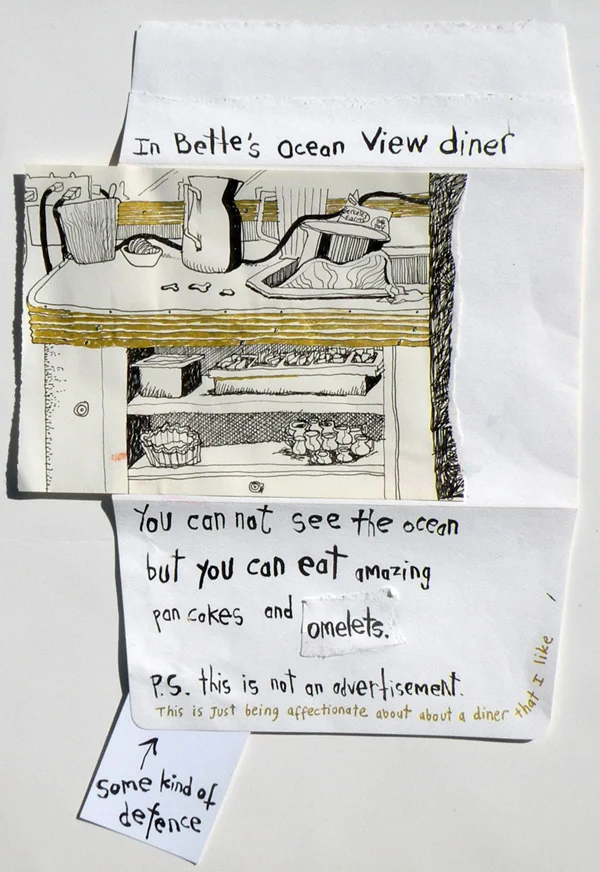 In Bette's ocean View diner
You can not see the ocean
but you can eat amazing
pan cakes and omelets.
P.S. this is not an advertisement.
This is Just being affectionate about about a diner that I like
some kind of
defence